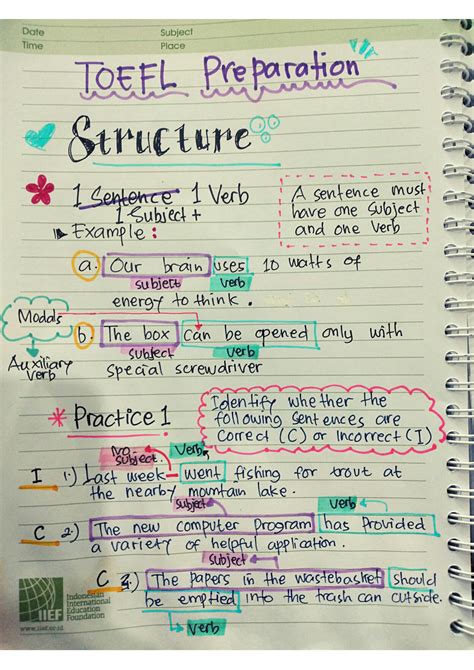 Date Subject
Time Place
TOEFL Preparation
Structure
1 Sentence 1 Verb
1 Subject +
Example :
A sentence must
have one subject
and one verb
a. Our brain uses 10 watts of
subject verb
energy to think.
Modds
b. The box can be opened only with
subject verb
Auxiliary
verb
special screwdriver
* Practice 1
Identify whether the
following sentences are
correct (C) or Incorrect (I)
No
subject.
Verb
I 1.) Last week went fishing for trout at
the nearby mountain lake.
subject
Verb
C 2.) The new computer program has provided
a variety of helpful application.
subject
C 3.) The papers in the wastebasket should
be emptied into the trash can outside.
verb
IIEF
Indonesian
International
Education
Foundation
www.iief.or.id